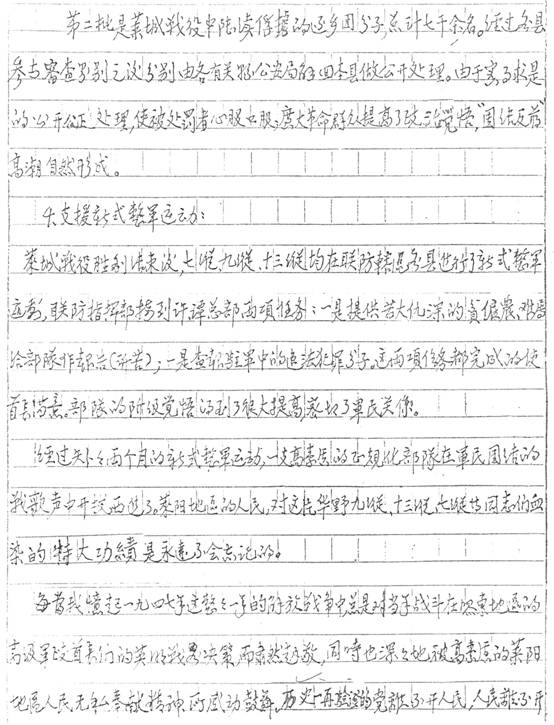 第二批是莱城战役中陆续俘掳的还乡团分子,总计七千余名。经过各县
参与审查甄别之后分别由各有关县公安局解回本县做公开处理。由于实事求是
的公开公正处理,使被处罚者心服口服,广大革命群众提高了政治觉悟,"团结反蒋"
高潮自然形成。
4、支援新式整军运动:
莱城战役胜利结束后,七纵、九纵、十三纵均在联防辖区各县进行了新式整军
运动,联防指挥部接到许谭总部两项任务:一是提供苦大仇深的贫雇农,
给部队作报告(诉苦);一是查报驻军中的违法犯罪分子,这两项任务都完成的使
首长满意。部队的阶级觉悟得到了很大提高,密切了军民关系。
经过两个月的新式整军运动,一支高素质的正规化部队在军民团结的
战歌声中开拔西进了。莱阳地区的人民,对这支华野九纵、十三纵、七纵等同志们血
染的特大功绩是永远不会忘记的。
每当我忆起一九四七年这整整一年的解放战争中总是对当年战斗在胶东地区的
高级军政首长们的英明战略决策而肃然起敬,同时也深深地被高素质的莱阳
地区人民无私奉献精神所感动鼓舞。历史一再验证的党离不开人民,人民离不开